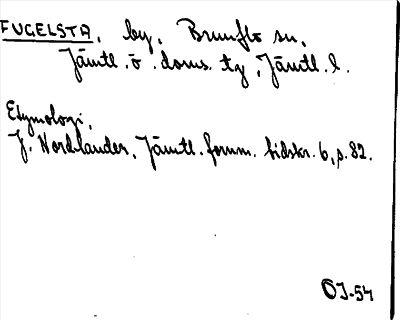 FUGELSTA, by, Brunflo sn,
Jämtl. ö. doms. tg, Jämtl. l.
Etymologi,
J. Nordlander, Jämtl. fornm. tidskr. 6, s. 82.
ÖJ-54